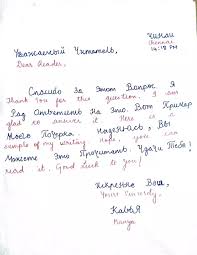 Чинаи
Chennai
14:18 PM
Уважаемый Читатель,
Dear Reader,
Спасибо За Этот Вопрос. Я
Thank You for this question. I am
Рад Ответить На Это. Вот Пример
glad to answer it. Here is a
Моего Почерка. Надеюсь, Вы
sample of my writing. Hope, you can
Можете Это Прочитать. Удачи Тебе!
read it. Good Luck to you!
Искренне Ваш,
Yours Sincerely,
Кавья
Kavya